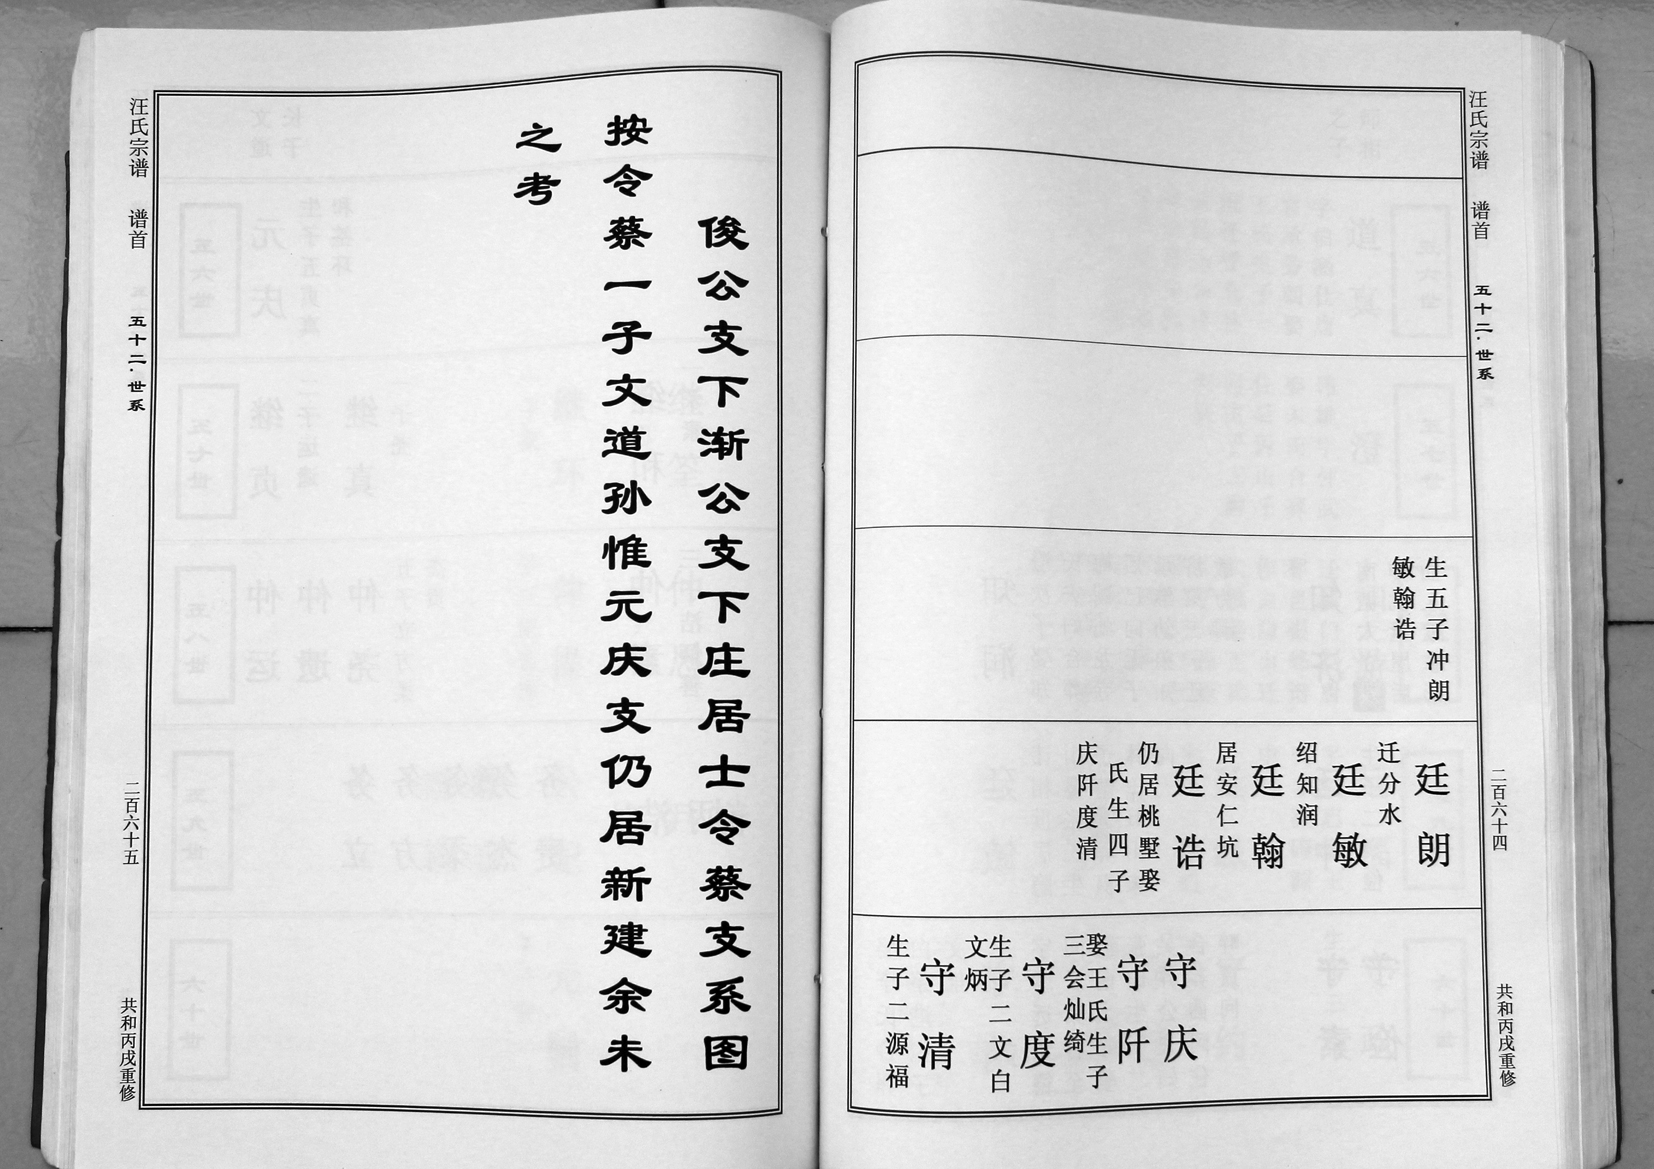 汪氏宗谱 谱首 五十二·世系 二百六十四 共和丙戌重修
生五子冲朗
敏翰诰
廷朗
迁分水
廷敏
绍知润
廷翰
居安仁坑
廷诰
仍居桃墅娶
氏生四子
庆阡度清
守庆
守阡
娶王氏生子
三会灿绮
守度
生子二文白
文炳
守清
生子二源福
俊公支下渐公支下庄居士令蔡支系图
按令蔡一子文道孙惟元庆支仍居新建余未
之考
汪氏宗谱 谱首 五十二·世系 二百六十五 共和丙戌重修